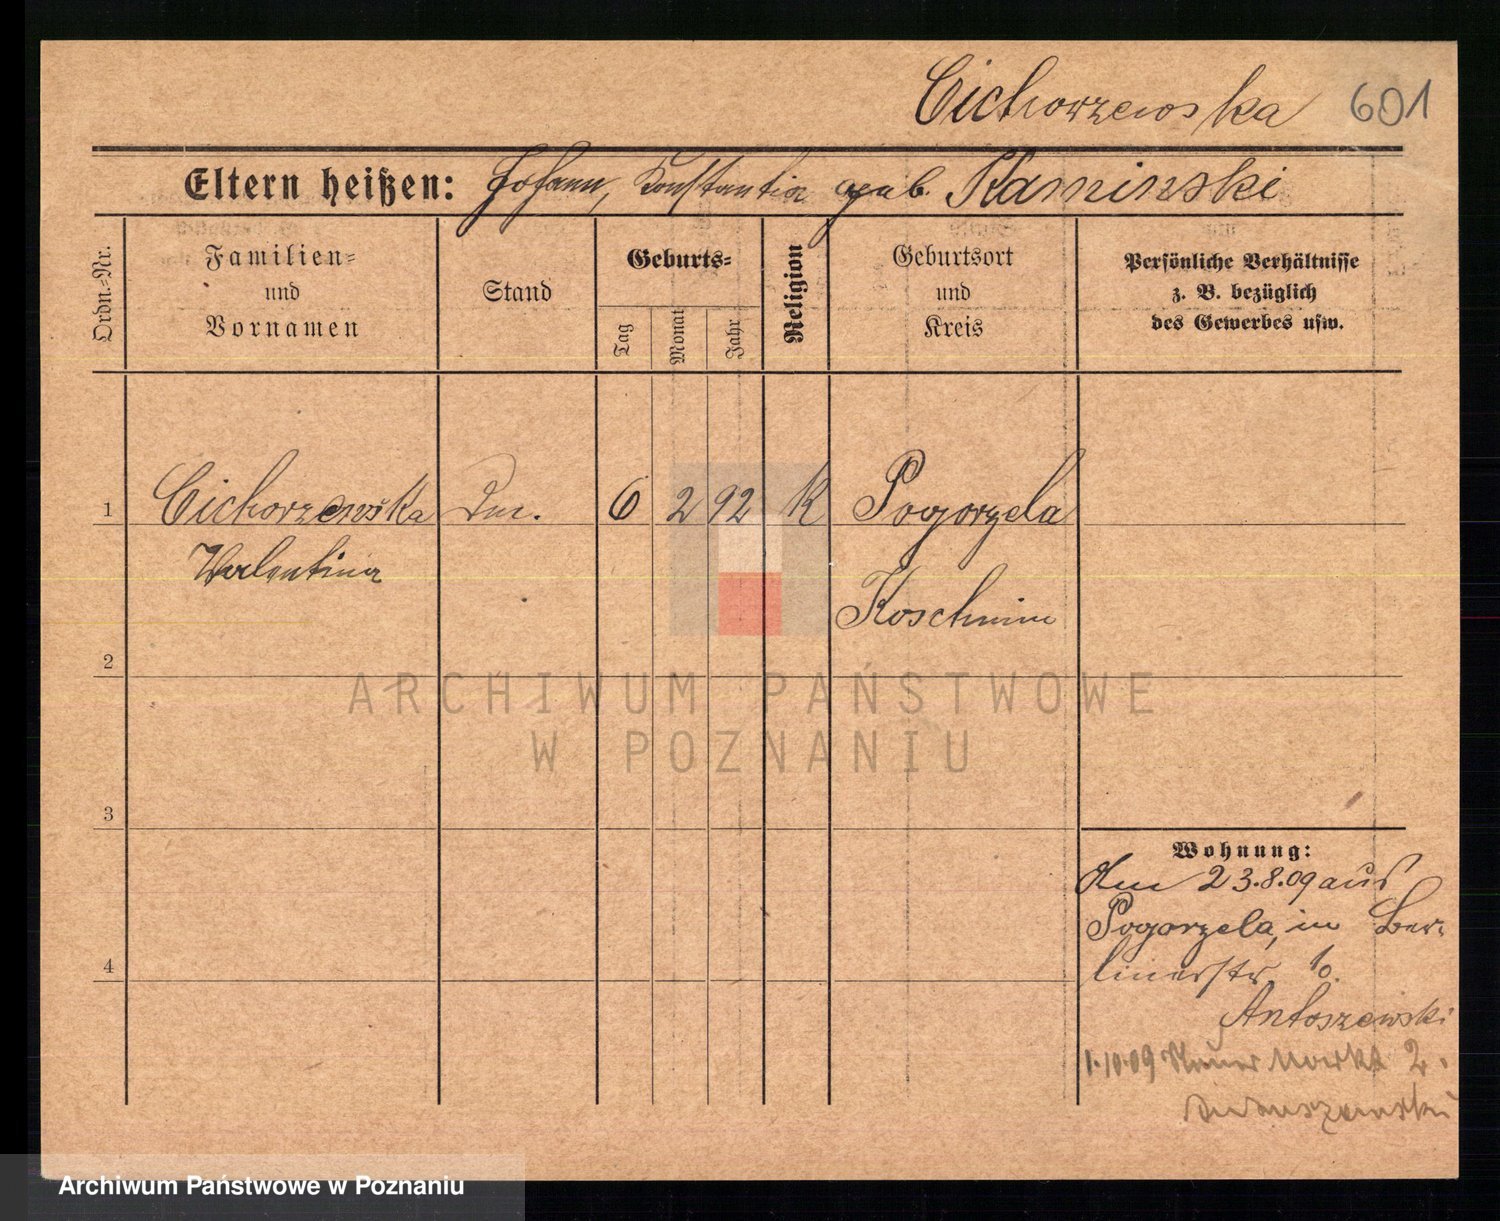 Cichorzewska 601
Eltern heißen: Johann, Konstantia geb. Kaminski
Ordn.-Nr.
Familien-
und
Vornamen
Stand
Geburts-
Tag
Monat
Jahr
Religion
Geburtsort
und
Kreis
Persönliche Verhältnisse
z. B. bezüglich
des Gewerbes usw.
1 Cichorzewska 6 2 92 K Pogorzela
Valentina
Koschmin
2
ARCHIWUM PAŃSTWOWE
W POZNANIU
3
Wohnung:
Am 23.8.09 aus
Pogorzela, in Ber-
linerstr 10.
Antoszewski
4
1.10.09 Neuer Markt 2.
Archiwum Państwowe w Poznaniu